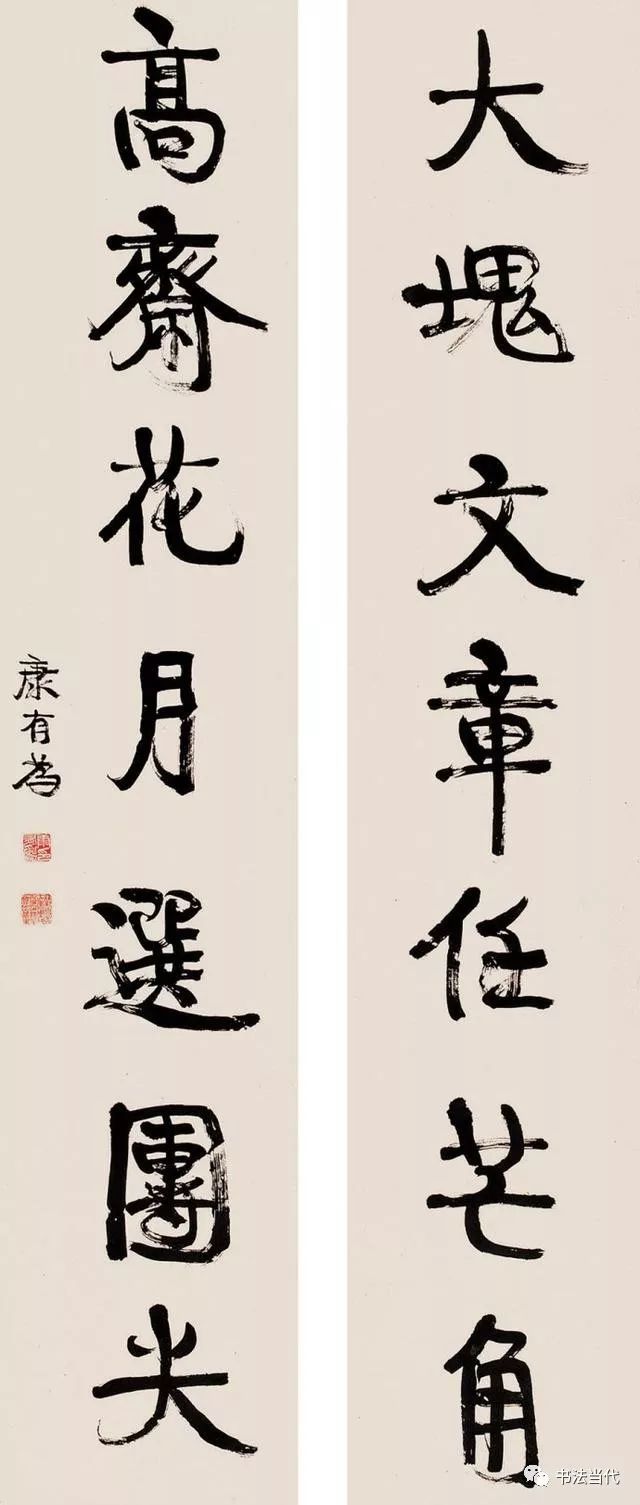 大塊文章任芒角
高齋花月選團尖
康有為
书法当代